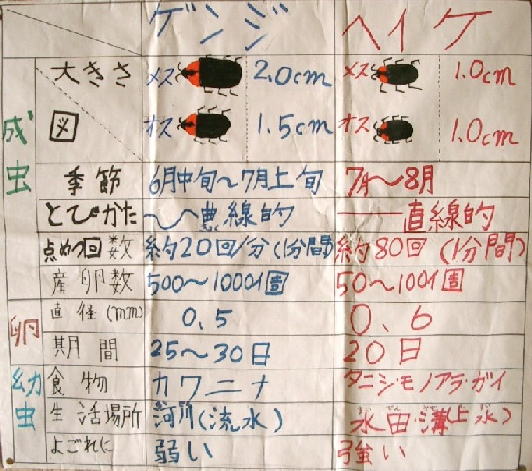 ゲンジ ヘイケ
成虫 大きさ メス 2.0cm メス 1.0cm
図 オス 1.5cm オス 1.0cm
季節 6月中旬〜7月上旬 7月〜8月
とびかた 曲線的 直線的
点めつ回数 約20回/分(1分間) 約80回(1分間)
産卵数 500〜1000個 50〜100個
卵 直径(mm) 0.5 0.6
期間 25〜30日 20日
幼虫 食物 カワニナ タニシ・モノアラ・ガイ
生活場所 河川(流水) 水田・溝(止水)
よごれに 弱い 強い